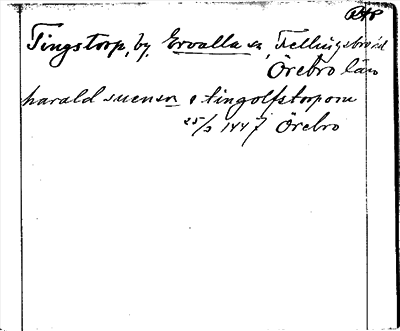 RAP
Tingstorp, by, Ervalla sn, Fellingsbro hd
Örebro län
harald suensn i tingolfstorpom
25/3 1447 Örebro